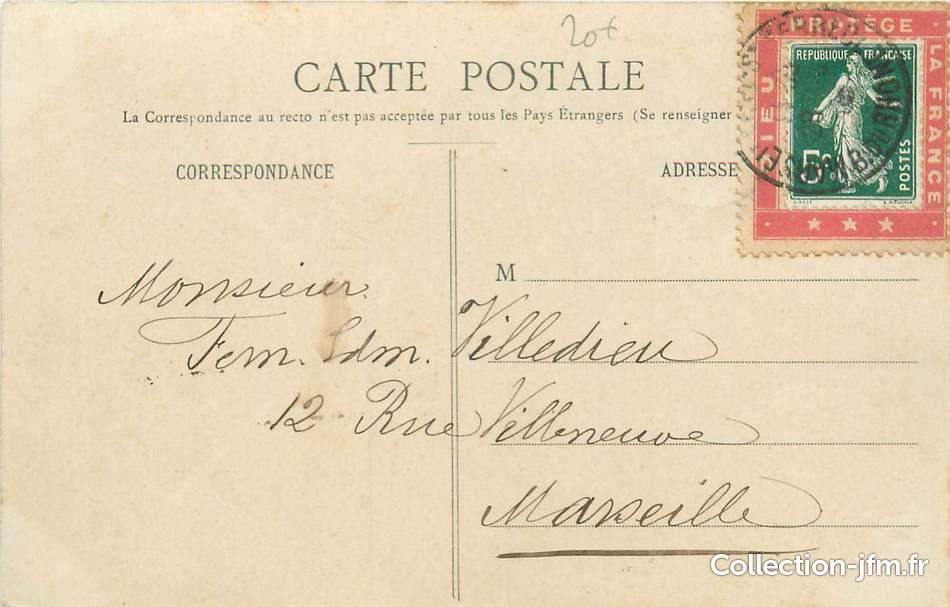 20€
CARTE POSTALE
La Correspondance au recto n'est pas acceptée par tous les Pays Étrangers (Se renseigner
CORRESPONDANCE
ADRESSE
DIEU PROTÈGE LA FRANCE
RÉPUBLIQUE FRANÇAISE
5c
POSTES
M
Monsieur
Fern. Edm. Villedieu
12 Rue Villeneuve
Marseille
Collection-jfm.fr